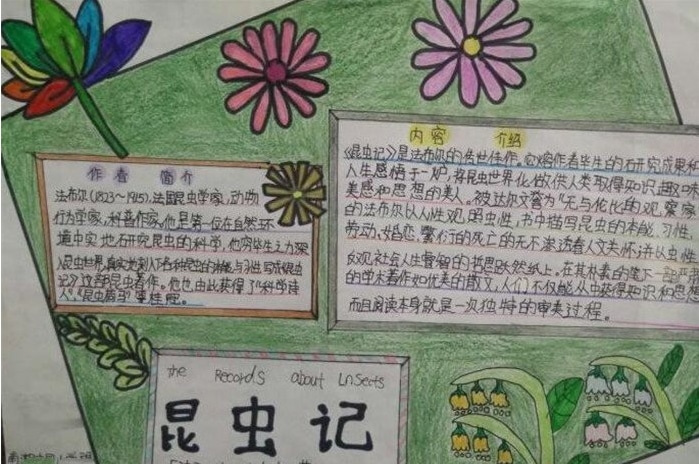 作者 简介
法布尔(1823~1915),法国昆虫学家,动物
行为学家,科普作家,他是第一位在自然环
境中实地研究昆虫的科学,他穷毕生之力深
入昆虫世界,真实地
这部昆虫著作。他也由此获得了"科学诗
人""昆虫荷马"等桂冠。
内容 介绍
《昆虫记》是法布尔的传世佳作,它熔作者毕生的研究成果和
人生感悟于一炉,将昆虫世界化做供人类取得知识、趣
美感和思想的美人。被达尔文赞为"无与伦比的观察家
的法布尔以人性观照虫性,书中描写昆虫的本能、习性、
劳动、婚恋、繁衍的死亡的无不渗透着人文关怀并以虫性
反观社会人生睿智的哲思跃然纸上。在其朴素的笔下一部严
的学术著作如优美的散文,人们不仅能从中获得知识和思想
而且阅读本身就是一次独特的审美过程。
the Records about Lnsects
昆虫记